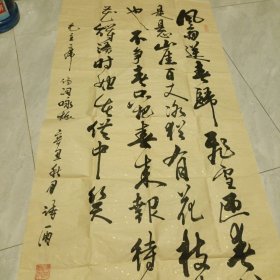 风雨送春归飞雪迎春
已是悬崖百丈冰犹有花枝
也不争春只把春来报待
花烂漫时她在丛中笑
毛主席诗词咏梅 秋月